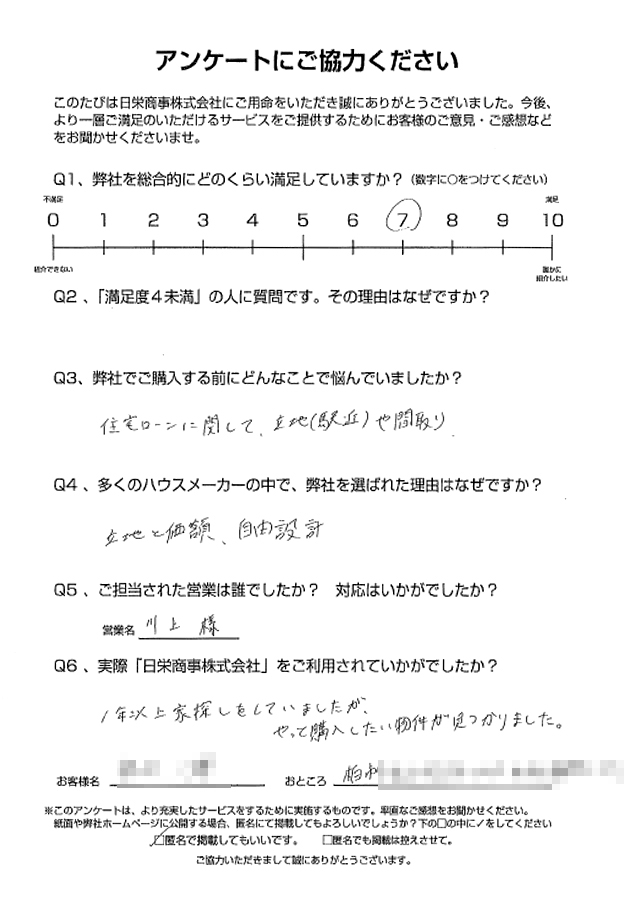 アンケートにご協力ください
このたびは日栄商事株式会社にご用命をいただき誠にありがとうございました。今後、
より一層ご満足のいただけるサービスをご提供するためにお客様のご意見・ご感想など
をお聞かせくださいませ。
Q1、弊社を総合的にどのくらい満足していますか？（数字に○をつけてください）
不満足 満足
0 1 2 3 4 5 6 7 8 9 10
紹介できない 誰かに
紹介したい
Q2、「満足度４未満」の人に質問です。その理由はなぜですか？
Q3、弊社でご購入する前にどんなことで悩んでいましたか？
住宅ローンに関して、立地(駅近)や間取り
Q4、多くのハウスメーカーの中で、弊社を選ばれた理由はなぜですか？
立地と価額、自由設計
Q5、ご担当された営業は誰でしたか？　対応はいかがでしたか？
営業名 川上 様
Q6、実際「日栄商事株式会社」をご利用されていかがでしたか？
1年以上家探しをしていましたが、
やっと購入したい物件が見つかりました。
お客様名 おところ 柏
※このアンケートは、より充実したサービスをするために実施するものです。率直なご感想をお聞かせください。
紙面や弊社ホームページに公開する場合、匿名にて掲載してもよろしいでしょうか？下の□の中に✓をしてください
☑匿名で掲載してもいいです。　□匿名でも掲載は控えさせて。
ご協力いただきまして誠にありがとうございます。